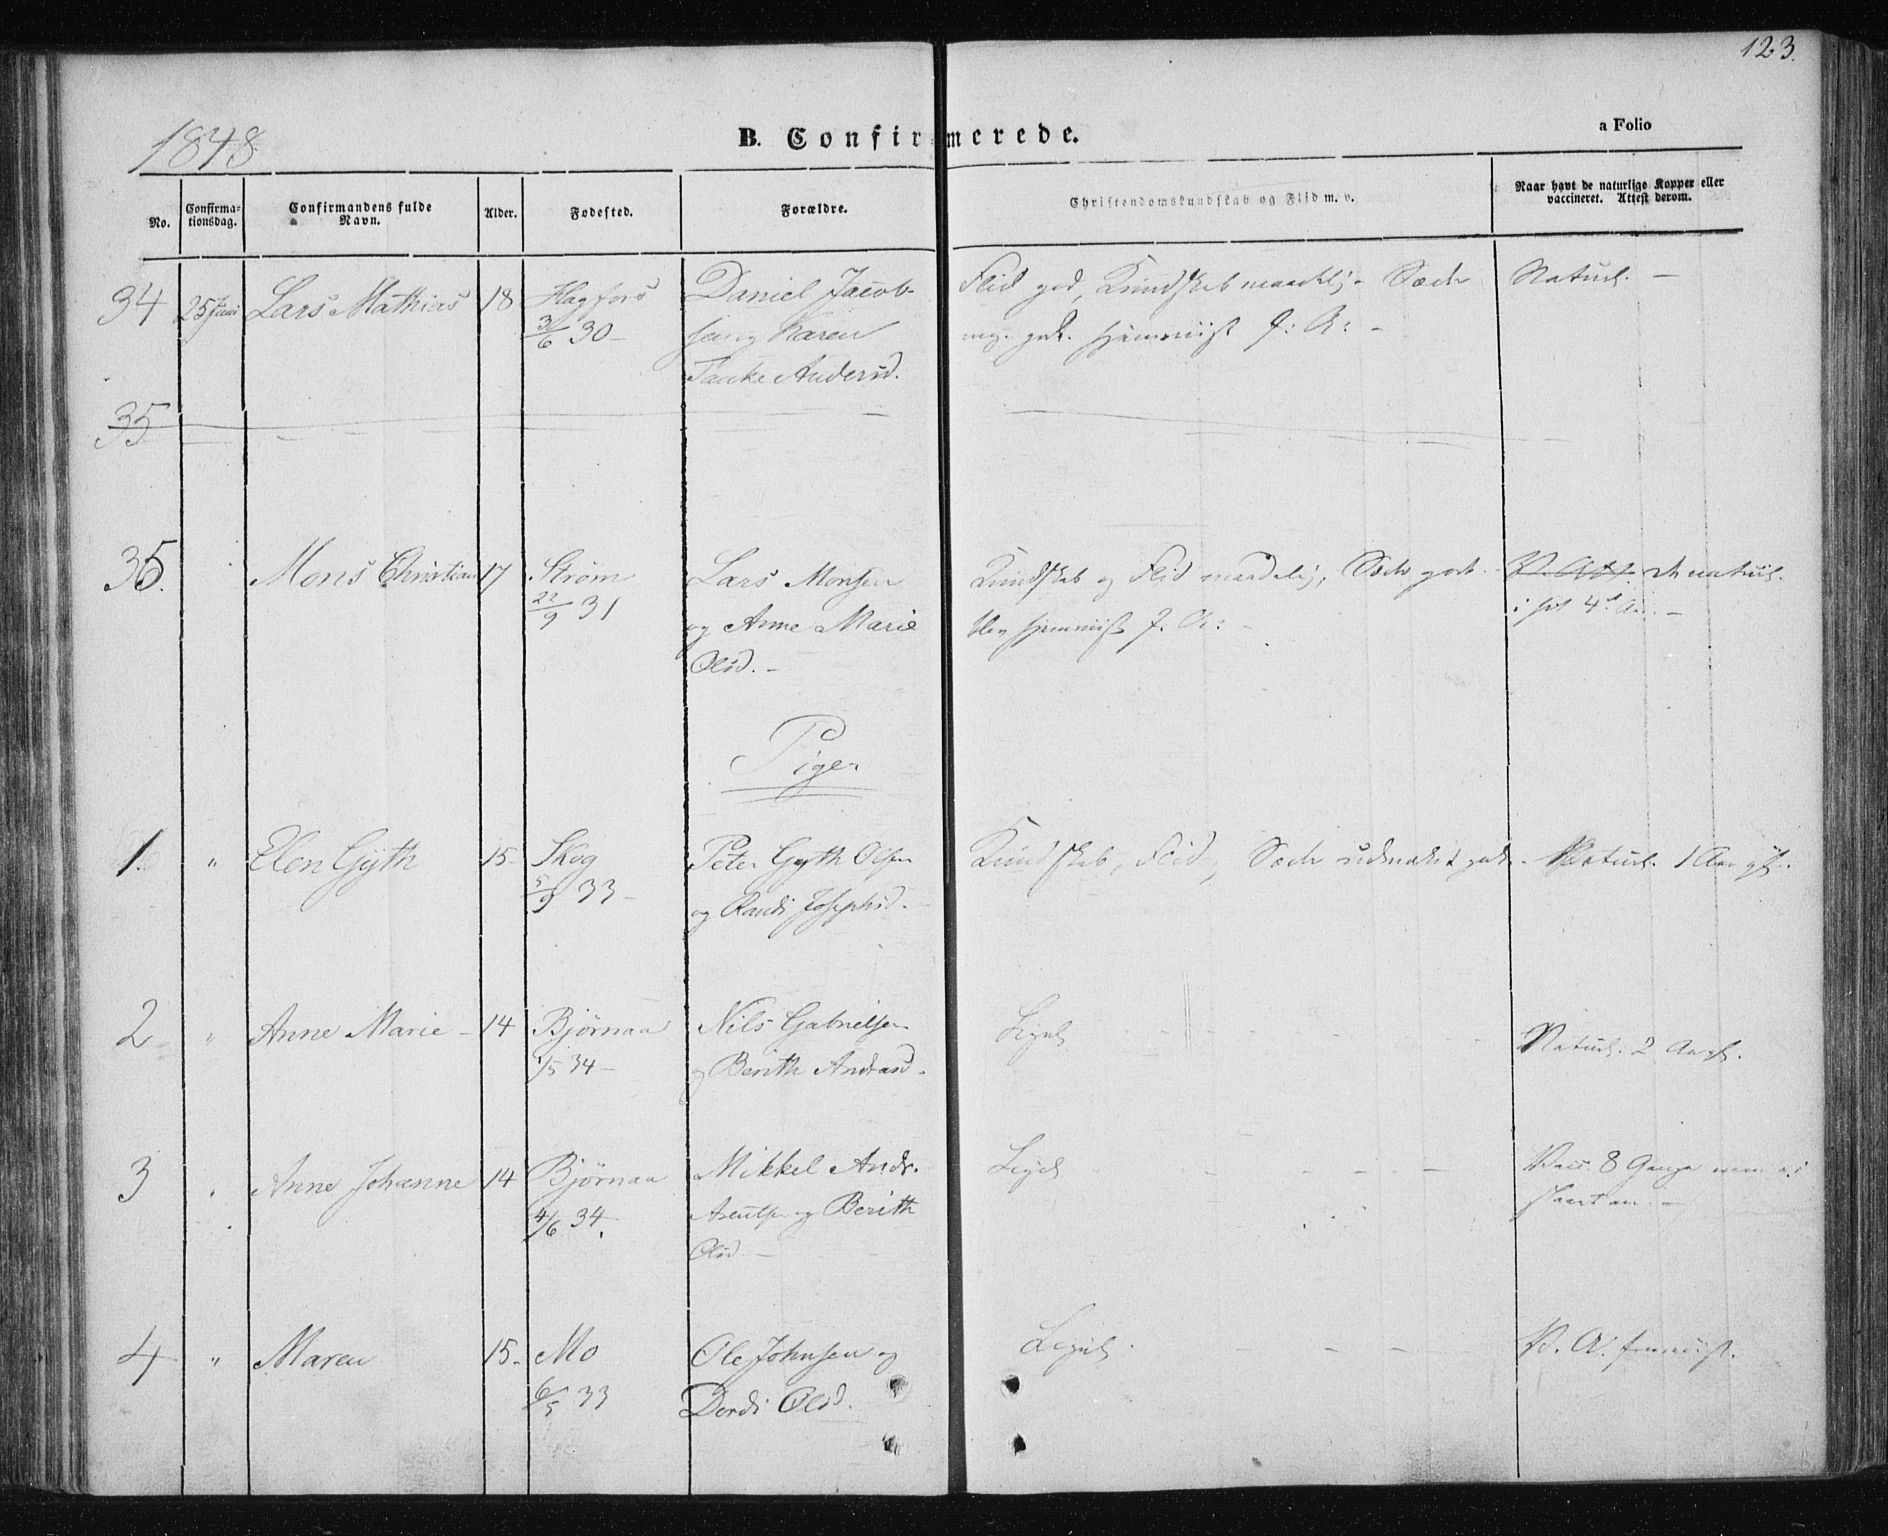 123.
1848
B. Confirmerede.
a Folio
No.
Confirma-
tionsdag.
Confirmandens fulde
Navn.
Alder.
Fødested.
Forældre.
Christendomskundskab og Flid m. v.
Naar havt de naturlige Kopper eller
vaccineret. Attest derom.
34 25 Juni Lars Mathias 18 Hagfors Daniel Jacob- Flid god, Kundskab maadelig - Sæder Naturl. -
3/6 30 - sen og Karen meg. gode.
Andersd.
35
35. Mons Christian 17 Strøm Lars Monsen Kundskab og Flid maadelig, Sæder gode. naturl.
22/9 31 og Anne Marie blev i sit 4de
Olsd. -
Piger
1. " Elen Gyth 15 - Skog Peter Gyth Olsen Kundskab, Flid, Sæder udmærket gode. Naturl. 1 Aar
5/9 33 - og Randi Josephsd.
2 " Anne Marie - 14 Bjørnaa Nils Gabrielsen Ligel. Naturl. 2
1/5 34 - og Berith Andrasd.
3 " Anne Johanne 14 Bjørnaa Mikkel Andr. Ligel. Vacc. 8 Gange men
4/6 34. og Berith
Olsd. -
4 " Maren 15 - Mo Ole Johnsen og Ligel. V. A.
6/5 33 Dordi Olsd.